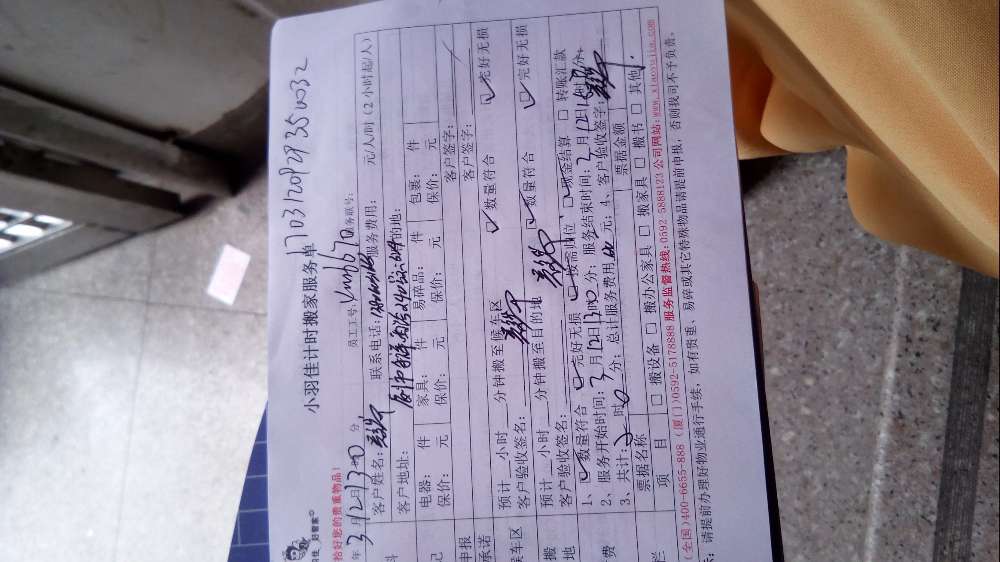 小羽佳计时搬家服务单
170312092935W032
拾好您的贵重物品)
年3月12日13时00分 员工工号:
服务联号:
客户姓名: 联系电话: 服务费用: 元/人/时(2小时起/人)
客户地址: 的地:
电器: 件 家具: 件 易碎品: 件 包裹: 件
保价: 元 保价: 元 保价: 元 保价: 元
申报 客户签字:
承诺 客户签字:
候车区 预计 小时 分钟搬至候车区 数量符合 完好无损
客户验收签名:
搬 预计 小时 分钟搬至目的地 数量符合 完好无损
地 客户验收签名:
1、 数量符合 完好无损 按需归位 现金结算 转账汇款
2、服务开始时间:3月12日13时00分;服务结束时间:3月12日15时 分。
费 3、共计:2时0分;总计服务费用 元;4、客户验收签字:
票据名称 票据金额
栏 项 目 搬设备 搬办公家具 搬家具 搬书 其他.
(全国)400-6655-888 (厦门)0592-5178888 服务监督热线:0592-5888123 公司网站:www.xiaoyujia.com
示:请提前办理好物业通行手续,如有贵重、易碎或其它特殊物品请提前申报,否则我司不予负责。